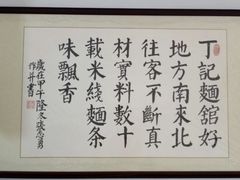 丁記麵舘好
地方南來北
往客不斷真
材實料數十
載米綫麵条
味飄香
歲在甲午隆冬
作并書